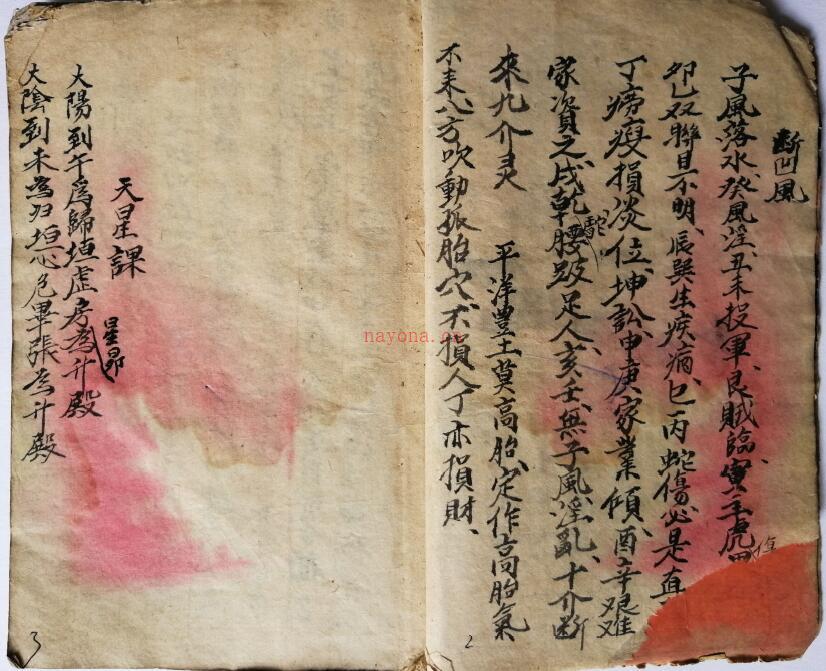 断凹風
子風落水、癸風淫、丑未投軍、艮賊臨、寅主虎
卯乙双聯目不明、辰巽生疾病、巳丙蛇傷必是真
丁癆瘦損災位、坤訟、申庚家業傾、酉辛艰难
家資乏、戌乾腰駝跛足人、亥壬、無子風淫亂、十介断
來九介灵
平洋豊土莫高胎、定作高胎氣
不来、八方吹動孤胎穴、不損人丁亦損財、
2
天星課
太陽到午爲歸垣虚房星昴為升殿
太陰到未為归垣心危畢張為升殿
3
nayona.cn